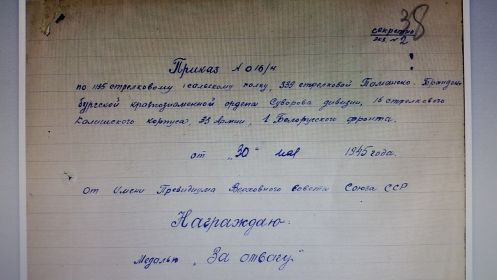 38
секретно
экз. № 2
Приказ № 016/н
по 1195 стрелковому полку, 339 стрелковой Таманско-Бранден-
бургской краснознаменной ордена Суворова дивизии, 16 стрелкового
Калишского корпуса, 33 Армии, 1 Белорусского фронта.
от "30" мая 1945 года.
От Имени Президиума Верховного Совета Союза ССР
Награждаю:
Медалью "За отвагу"